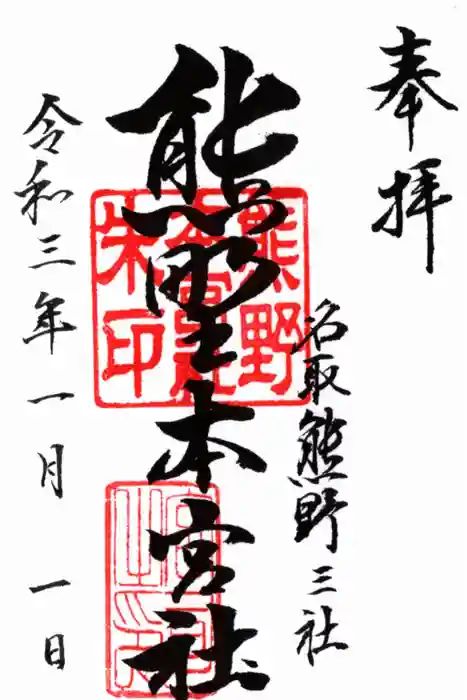 奉拝
名取熊野三社
熊野本宮社
熊野
朱印
令和三年一月一日